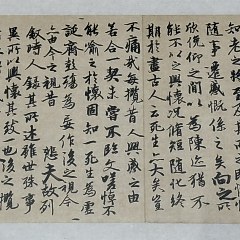 知老之
隨事遷感慨係之矣向之所
欣俛仰之間以為陳迹猶不
能不以之興懷況脩短隨化終
期於盡古人云死生亦大矣豈
不痛哉每攬昔人興感之由
若合一契未嘗不臨文嗟悼不
能喻之於懷固知一死生為虛
誕齊彭殤為妄作後之視今
亦由今之視昔悲夫故列
敘時人錄其所述雖世殊事
異所以興懷其致一也後之攬